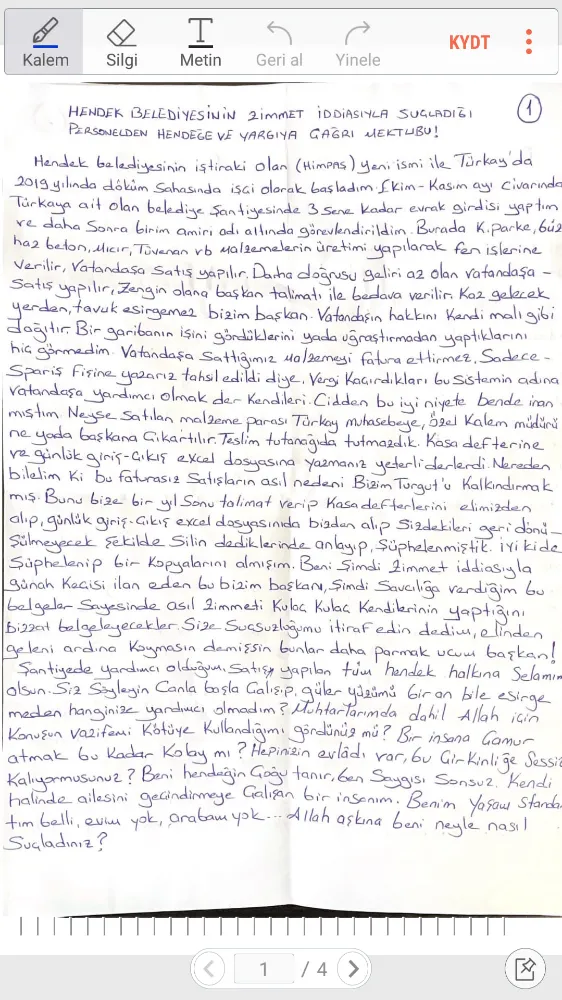 Kalem Silgi Metin Geri al Yinele KYDT
1
HENDEK BELEDİYESİNİN ZİMMET İDDİASIYLA SUÇLADIĞI
PERSONELDEN HENDEĞE VE YARGIYA ÇAĞRI MEKTUBU!
Hendek belediyesinin iştiraki olan (HİMPAŞ) yeni ismi ile Türkay'da
2019 yılında döküm sahasında işçi olarak başladım. Ekim-Kasım ayı civarında
Türkaya ait olan belediye şantiyesinde 3 sene kadar evrak girdisi yaptım
ve daha sonra birim amiri adı altında görevlendirildim. Burada K.parke, büz
haz beton, Mıcır, Tüvenan vb malzemelerin üretimi yapılarak fen işlerine
verilir, vatandaşa satış yapılır. Daha doğrusu geliri az olan vatandaşa-
satış yapılır, Zengin olana başkan talimatı ile bedava verilir. Kaz gelecek
yerden, tavuk esirgemez bizim başkan. Vatandaşın hakkını kendi malı gibi
dağıtır. Bir garibanın işini gördüklerini yada uğraştırmadan yaptıklarını
hiç görmedim. Vatandaşa sattığımız malzemeyi fatura ettirmez, Sadece-
Spariş fişine yazarız tahsil edildi diye. Vergi kaçırdıkları bu sistemin adına
vatandaşa yardımcı olmak der kendileri. Cidden bu iyi niyete bende inan
mıştım. Neyse satılan malzeme parası Türkay muhasebeye, özel kalem müdürü
ne yada başkana çıkartılır. Teslim tutanağıda tutmazdık. Kasa defterine
ve günlük giriş-çıkış excel dosyasına yazmanız yeterli derlerdi. Nereden
bilelim ki bu faturasız satışların asıl nedeni Bizim Turgut'u kalkındırmak
mış. Bunu bize bir yıl sonu talimat verip kasa defterlerini elimizden
alıp, günlük giriş-çıkış excel dosyasınıda bizden alıp sizdekileri geri dönü-
şülmeyecek şekilde silin dediklerinde anlayıp, şüphelenmiştik. iyi kide
şüphelenip bir kopyalarını almışım. Beni şimdi zimmet iddiasıyla
günah keçisi ilan eden bu bizim başkanı, şimdi savcılığa verdiğim bu
belgeler sayesinde asıl zimmeti kulaç kulaç kendilerinin yaptığını
bizzat belgeleyecekler. Size suçsuzluğumu itiraf edin dedim, elinden
geleni ardına koymasın demişsin bunlar daha parmak ucum başkan!
Şantiyede yardımcı olduğum, satış yapılan tüm hendek halkına selamım
olsun. Siz söyleyin canla başla çalışıp, güler yüzümü bir an bile esirge
meden hanginize yardımcı olmadım? Muhtarlarımda dahil Allah için
konuşun vazifemi kötüye kullandığımı gördünüz mü? Bir insana çamur
atmak bu kadar kolay mı? Hepinizin evlâdı var, bu çirkinliğe sessiz
kalıyormusunuz? Beni hendeğin çoğu tanır, ben saygısı sonsuz, kendi
halinde ailesini geçindirmeye çalışan bir insanım. Benim yaşam standar
tım belli, evim yok, arabam yok... Allah aşkına beni neyle nasıl
suçladınız?
1 / 4